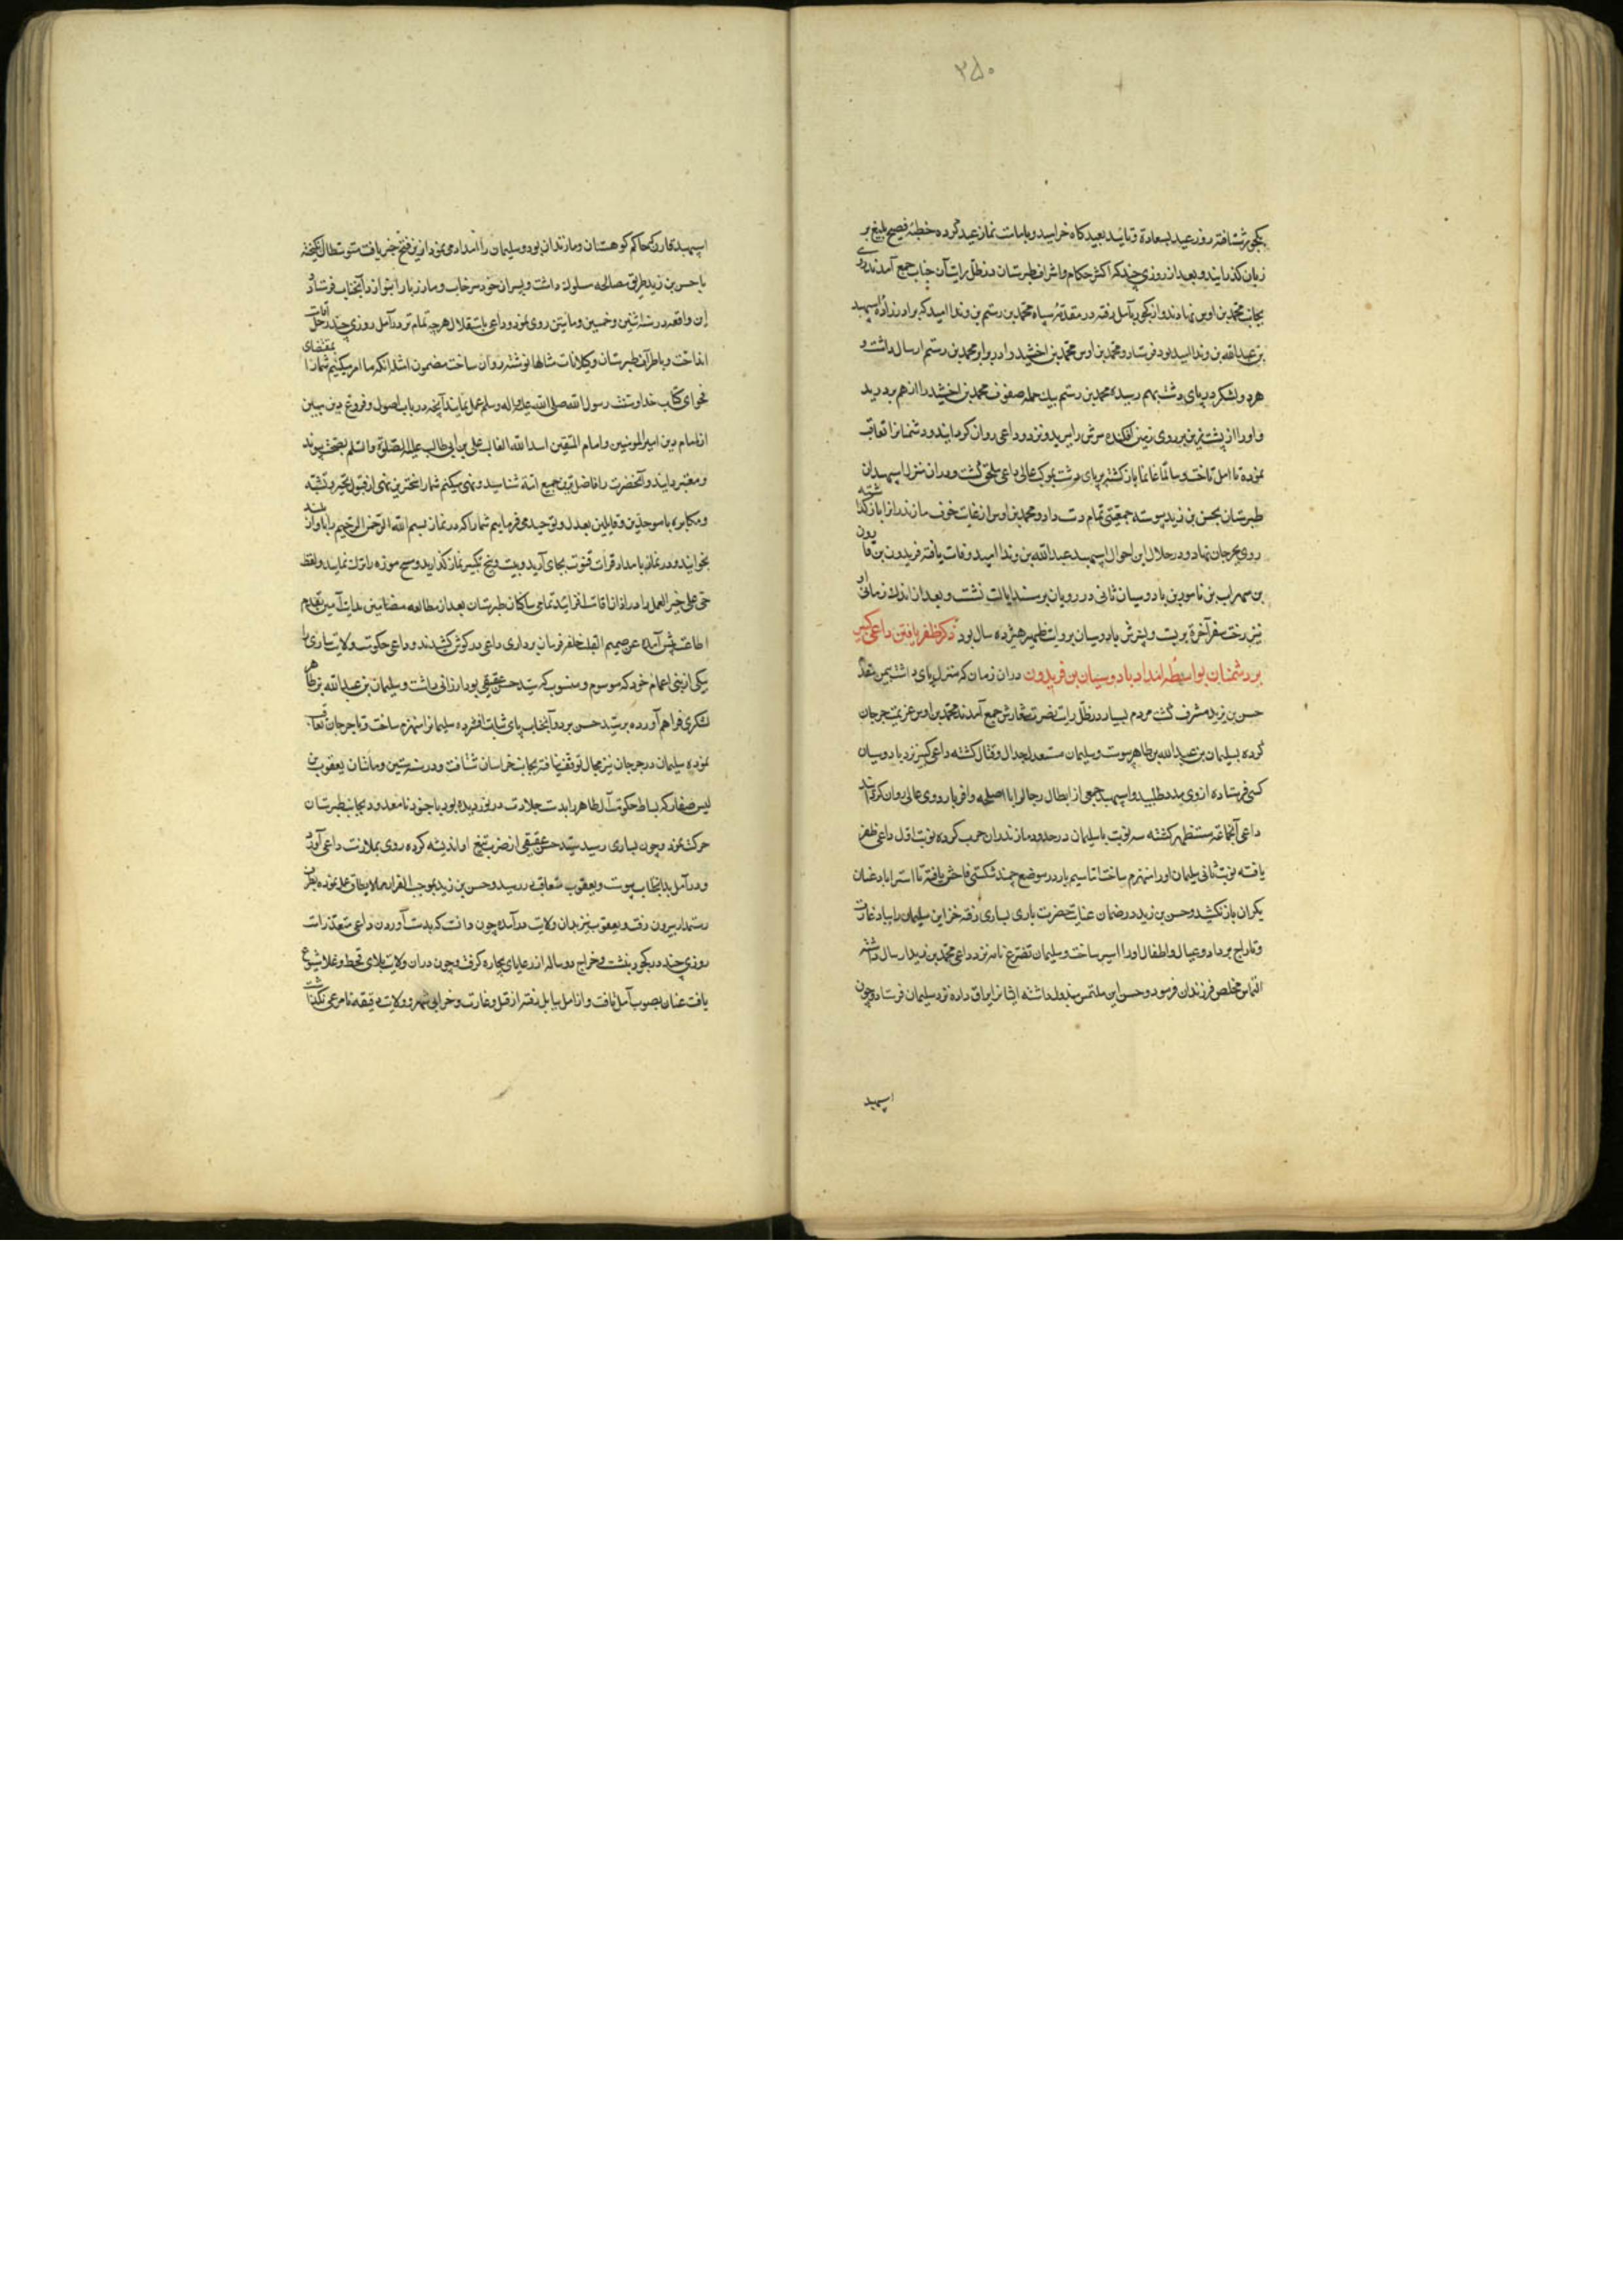 ۲۵۰
بکجور شتافته روز عید بسعادة و تایید بعیدکاه خرامید و بامامت نماز عید کرده خطبهٔ فصیح بلیغ بر
زبان کذرانید و بعد از روزی چند که اکثر حکام و اشراف طبرستان در ظل رایت آن جناب جمع آمدند روی
بجانب محمد بن اوس نهادند و از کجور بآمل رفته در مقدمهٔ سپاه محمد بن رستم بن ونداامید که برادرزادهٔ اسپهبد
بن عبدالله بن ونداامید بود فرستاد و محمد بن اوس محمد بن اخشید را در برابر محمد بن رستم ارسال داشت و
هر دو لشکر در پای دشت بهم رسیده محمد بن رستم بیک حمله صفوف محمد بن اخشید را از هم بردرید
و او را از پشت زین بر روی زمین افکنده سرش را ببرید و نزد داعی روان کردانید و دشمنانرا تعاقب
نموده تا آمل تاخت و سالمًا غانمًا بازکشته در پای دشت بموکب عالی داعی ملحق کشت و در آن منزل اسپهبدان
طبرستان بحسن بن زید پیوسته جمعیتی تمام دست داد و محمد بن اوس از غایت خوف مازندرانرا بازکذاشته
روی بجرجان نهاد و در خلال این احوال اسپهبد عبدالله بن ونداامید وفات یافته فریدون بن قارون
بن سهراب بن نامور بن بادوسبان ثانی در رویان بر مسند ایالت نشست و بعد از اندک زمانی او
نیز رخت سفر آخرة بربست و پسرش بادوسبان بروایت ظهیر هیژده سال بود ذکر ظفر یافتن داعی کبیر
بر دشمنان بواسطهٔ امداد بادوسبان بن فریدون در آن زمان که منزل پای دشت بیمن مقدم
حسن بن زید مشرف کشت مردم بسیار در ظل رایت نصرت شعارش جمع آمدند محمد بن اوس عزیمت جرجان
کرده بسلیمان بن عبدالله بن طاهر پیوست و سلیمان مستعد جدال و قتال کشته داعی کبیر نزد بادوسبان
کس فرستاده از وی مدد طلبید و اسپهبد جمعی از ابطال رجال را با اسلحه وافر باردوی عالی روان کردانید
داعی آنجماعت مستظهر کشته سه نوبت با سلیمان در حدود مازندران حرب کرده نوبت اول داعی ظفر
یافته نوبت ثانی سلیمان او را منهزم ساخت تا سیم بار در موضع چمند شکستی فاحش یافته تا استراباد عنان
یکران باز نکشید و حسن بن زید در ضمان عنایت حضرت باری بساری رفته خزاین سلیمان را بباد غارت
و تاراج برداد و عیال و اطفال او را اسیر ساخت و سلیمان تضرع نامه نزد داعی محمد بن زید ارسال داشته
التماس مخلص فرزندان فرمود و حسن این ملتمس مبذول داشته ایشانرا یراق داده نزد سلیمان فرستاد و چون
اسپهبد
اسپهبد قارن که حاکم کوهستان و مازندران بود و سلیمان را امداد می نمود ازین فتح خبر یافت متوسطان انکیخته
با حسن بن زید طریق مصالحه سلوک داشت و پسران خود سرخاب و مازیار را بنوا نزد آنجناب فرستاد و
این واقعه در سنه اثنین و خمسین و مایتین روی نمود و داعی باستقلال هرچه تمام تر در آمل روزی چند رحل اقامت
انداخت و باطراف طبرستان و کیلانات مثالها نوشته روان ساخت مضمون امثله آنکه ما امر میکنیم شما را بمقتضای
فحوای کتاب خدا و سنت رسول الله صلی الله علیه و اله و سلم عمل نمایند آنچه در باب اصول و فروع دین مبین
از امام دین امیرالمومنین و امام المتقین اسد الله الغالب علی بن ابی طالب علیه الصلوة و السلم بصحت پیوندد
و معتبر دانید و آنحضرت را فاضل ترین جمیع امت شناسید و نهی میکنم شما را سخت ترین نهی از قبول بجبر و تشبیه
و مکابره با موحدین و قایلین بعدل و توحید و می فرمایم شما را که در نماز بسم الله الرحمن الرحیم را بآواز بلند
بخوانید و در نماز بامداد قرات قنوت بجای آرید و بر میت پنج تکبیر نماز کذارید و مسح موزه را ترک نمایید و لفظ
حی علی خیر العمل را در اذان اقامت افزایند تمامی ساکنان طبرستان بعد از مطالعه مضامین هدایت آیین بقدم
اطاعت پیش آمده عن صمیم القلب حلقه فرمان برداری داعی در کوش کشیدند و داعی حکومت ولایت ساری را
بیکی از بنی اعمام خود که موسوم و منسوب که سید حسن عقیقی بود ارزانی داشت و سلیمان بن عبدالله بن طاهر
لشکری فراهم آورده بر سید حسن برد و آنجناب پای ثبات افشرده سلیمانرا منهزم ساخت و تا جرجان تعاقب
نموده سلیمان در جرجان نیز مجال توقف نیافته بجانب خراسان شتافت و در سنه ستین و ماتان یعقوب بن
لیس صفار که بساط حکومت آل طاهر را بدست جلادت در نوردیده بود با جنود نامعدود بجانب طبرستان
حرکت نمود و چون بساری رسید سید حسن عقیقی از ضرب تیغ او اندیشه کرده روی بملازمت داعی آورد
و در آمل بدانجناب پیوست و یعقوب متعاقب در رسید و حسن بن زید بموجب الفرار مما لا یطاق عمل نموده بطرف
رستمدار بیرون رفت و یعقوب نیز بدان ولایت در آمده چون دانست که بدست آوردن داعی متعذر است
روزی چند در کجور بنشست و خراج دو ساله از رعایای بیچاره کرفت و چون در آن ولایت بلای قحط و غلا شیوع
یافت عنان بصوب آمل تافت و از آمل ببابل رفته از قتل و غارت و خرابی شهر و ولایت دقیقه نامرعی نکذاشت